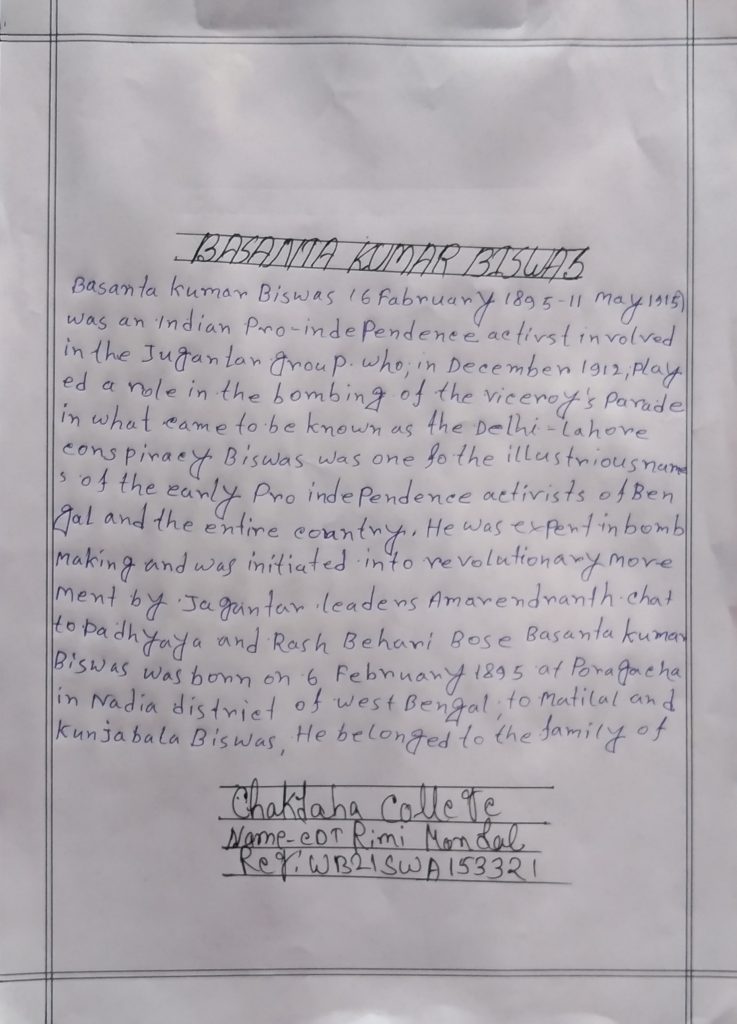 BASANTA KUMAR BISWAS
Basanta Kumar Biswas (6 Fabruary 1895-11 May 1915)
was an Indian Pro-independence activst involved
in the Jugantar group. who, in December 1912, Play
ed a role in the bombing of the viceroy's Parade
in what came to be known as the Delhi-Lahore
conspiracy Biswas was one fo the illustrious name
s of the early Pro independence activists of Ben
gal and the entire country. He was expert in bomb
making and was initiated into revolutionary move
ment by Jagantar leaders Amarendranth chat
topadhyaya and Rash Behari Bose Basanta kumar
Biswas was born on 6 February 1895 at Poragacha
in Nadia district of west Bengal, to Matilal and
Kunjabala Biswas, He belonged to the family of
Chakdaha College
Name-CDT Rimi Mondal
Reg: WB21SWA153321